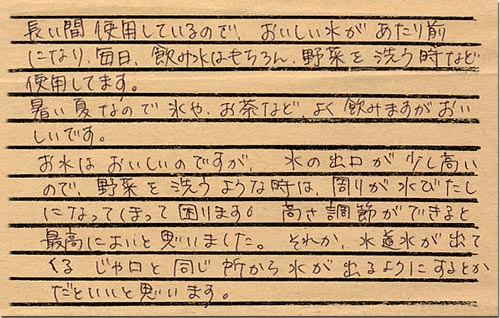 長い間 使用しているので、おいしい水が あたり前
になり、毎日、飲み水はもちろん、野菜を 洗う時など
使用してます。
暑い夏なので 氷や、お茶など、よく 飲みますが おい
しいです。
お水は おいしいのですが、 水の出口が 少し高い
ので、野菜を 洗うような時は、周りが 水びたし
になってしまって 困ります。 高さ調節ができると
最高によいと思いました。それか、水道水が出て
くる じゃ口と同じ所から 水が 出るようにするとか
だといいと思います。